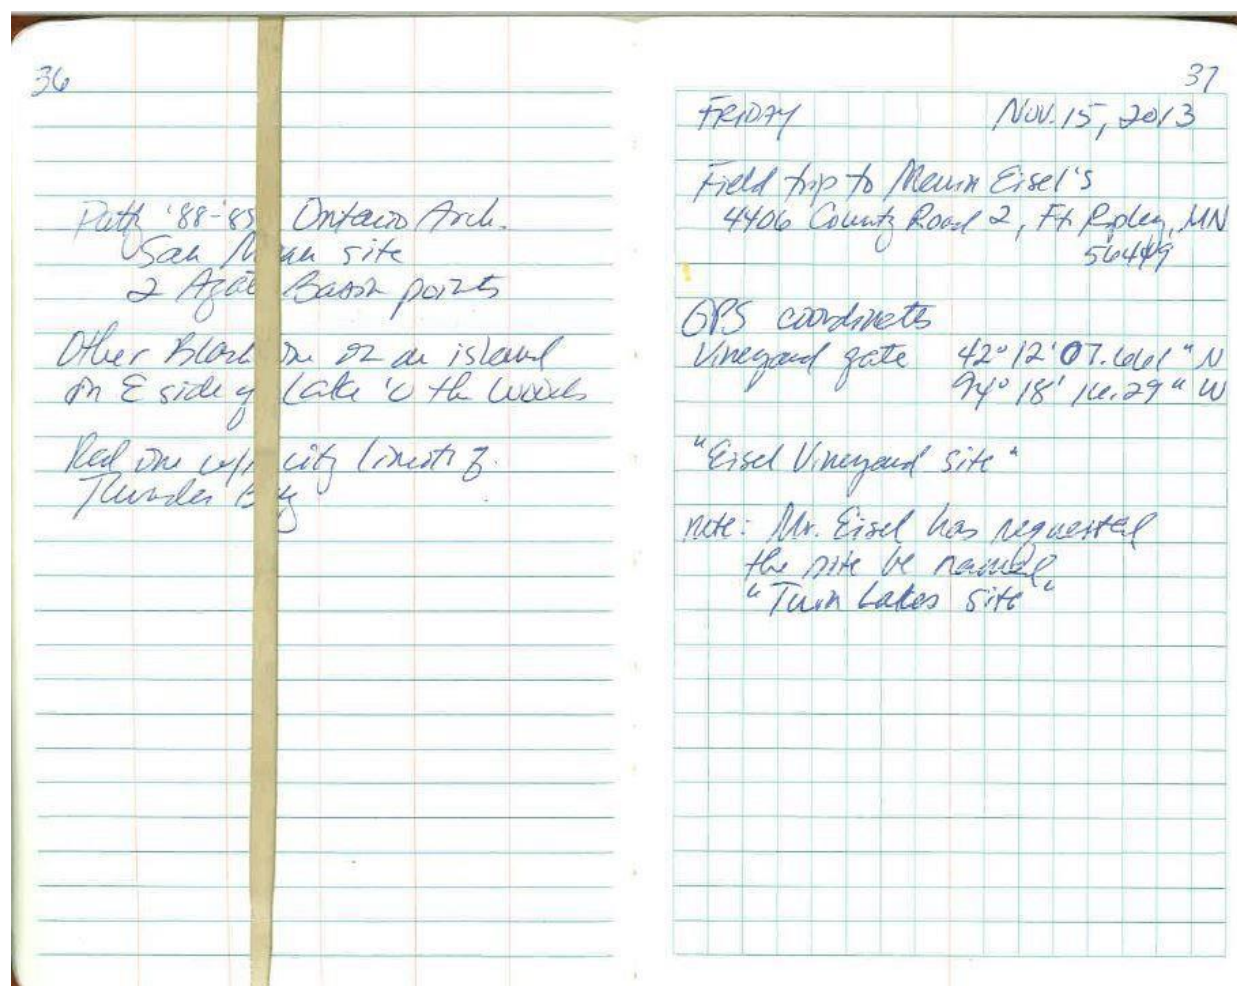 36
'88-'85 Ontario Arch.
San site
2 Basin points
Other on an island
on E side of Lake 'o the Woods
Red one w/i city limits of
Thunder Bay
37
FRIDAY Nov. 15, 2013
Field trip to Eisel's
4406 County Road 2, Ft Ripley, MN
56449
GPS coordinates
Vineyard gate 42° 12' 07.661" N
94° 18' 16.29" W
"Eisel Vineyard site"
note: Mr. Eisel has requested
the site be named
"Twin Lakes site"